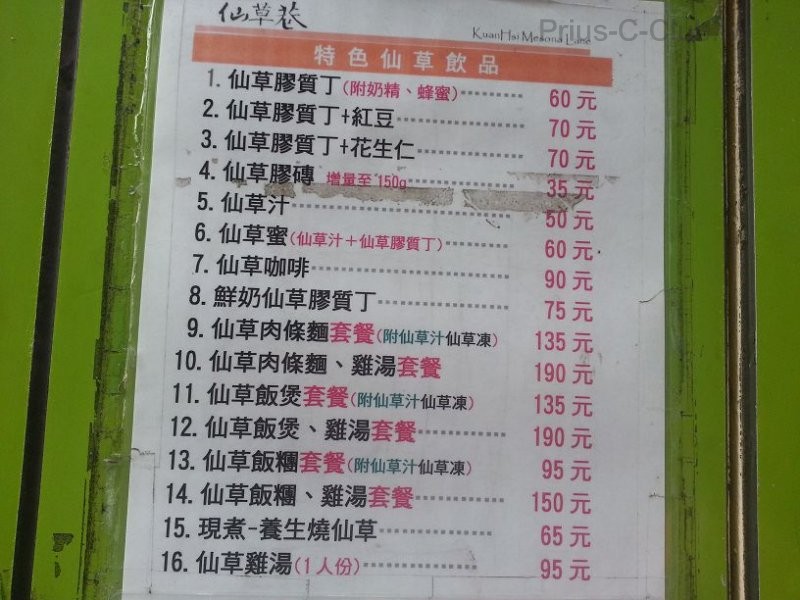 仙草巷
KuanHsi Mesona Lane
Prius-C-C
特色仙草飲品
1. 仙草膠質丁(附奶精、蜂蜜) 60 元
2. 仙草膠質丁+紅豆 70 元
3. 仙草膠質丁+花生仁 70 元
4. 仙草膠磚 增量至 150g 35 元
5. 仙草汁 50 元
6. 仙草蜜(仙草汁+仙草膠質丁) 60 元
7. 仙草咖啡 90 元
8. 鮮奶仙草膠質丁 75 元
9. 仙草肉條麵套餐(附仙草汁仙草凍) 135 元
10. 仙草肉條麵、雞湯套餐 190 元
11. 仙草飯煲套餐(附仙草汁仙草凍) 135 元
12. 仙草飯煲、雞湯套餐 190 元
13. 仙草飯糰套餐(附仙草汁仙草凍) 95 元
14. 仙草飯糰、雞湯套餐 150 元
15. 現煮-養生燒仙草 65 元
16. 仙草雞湯(1人份) 95 元